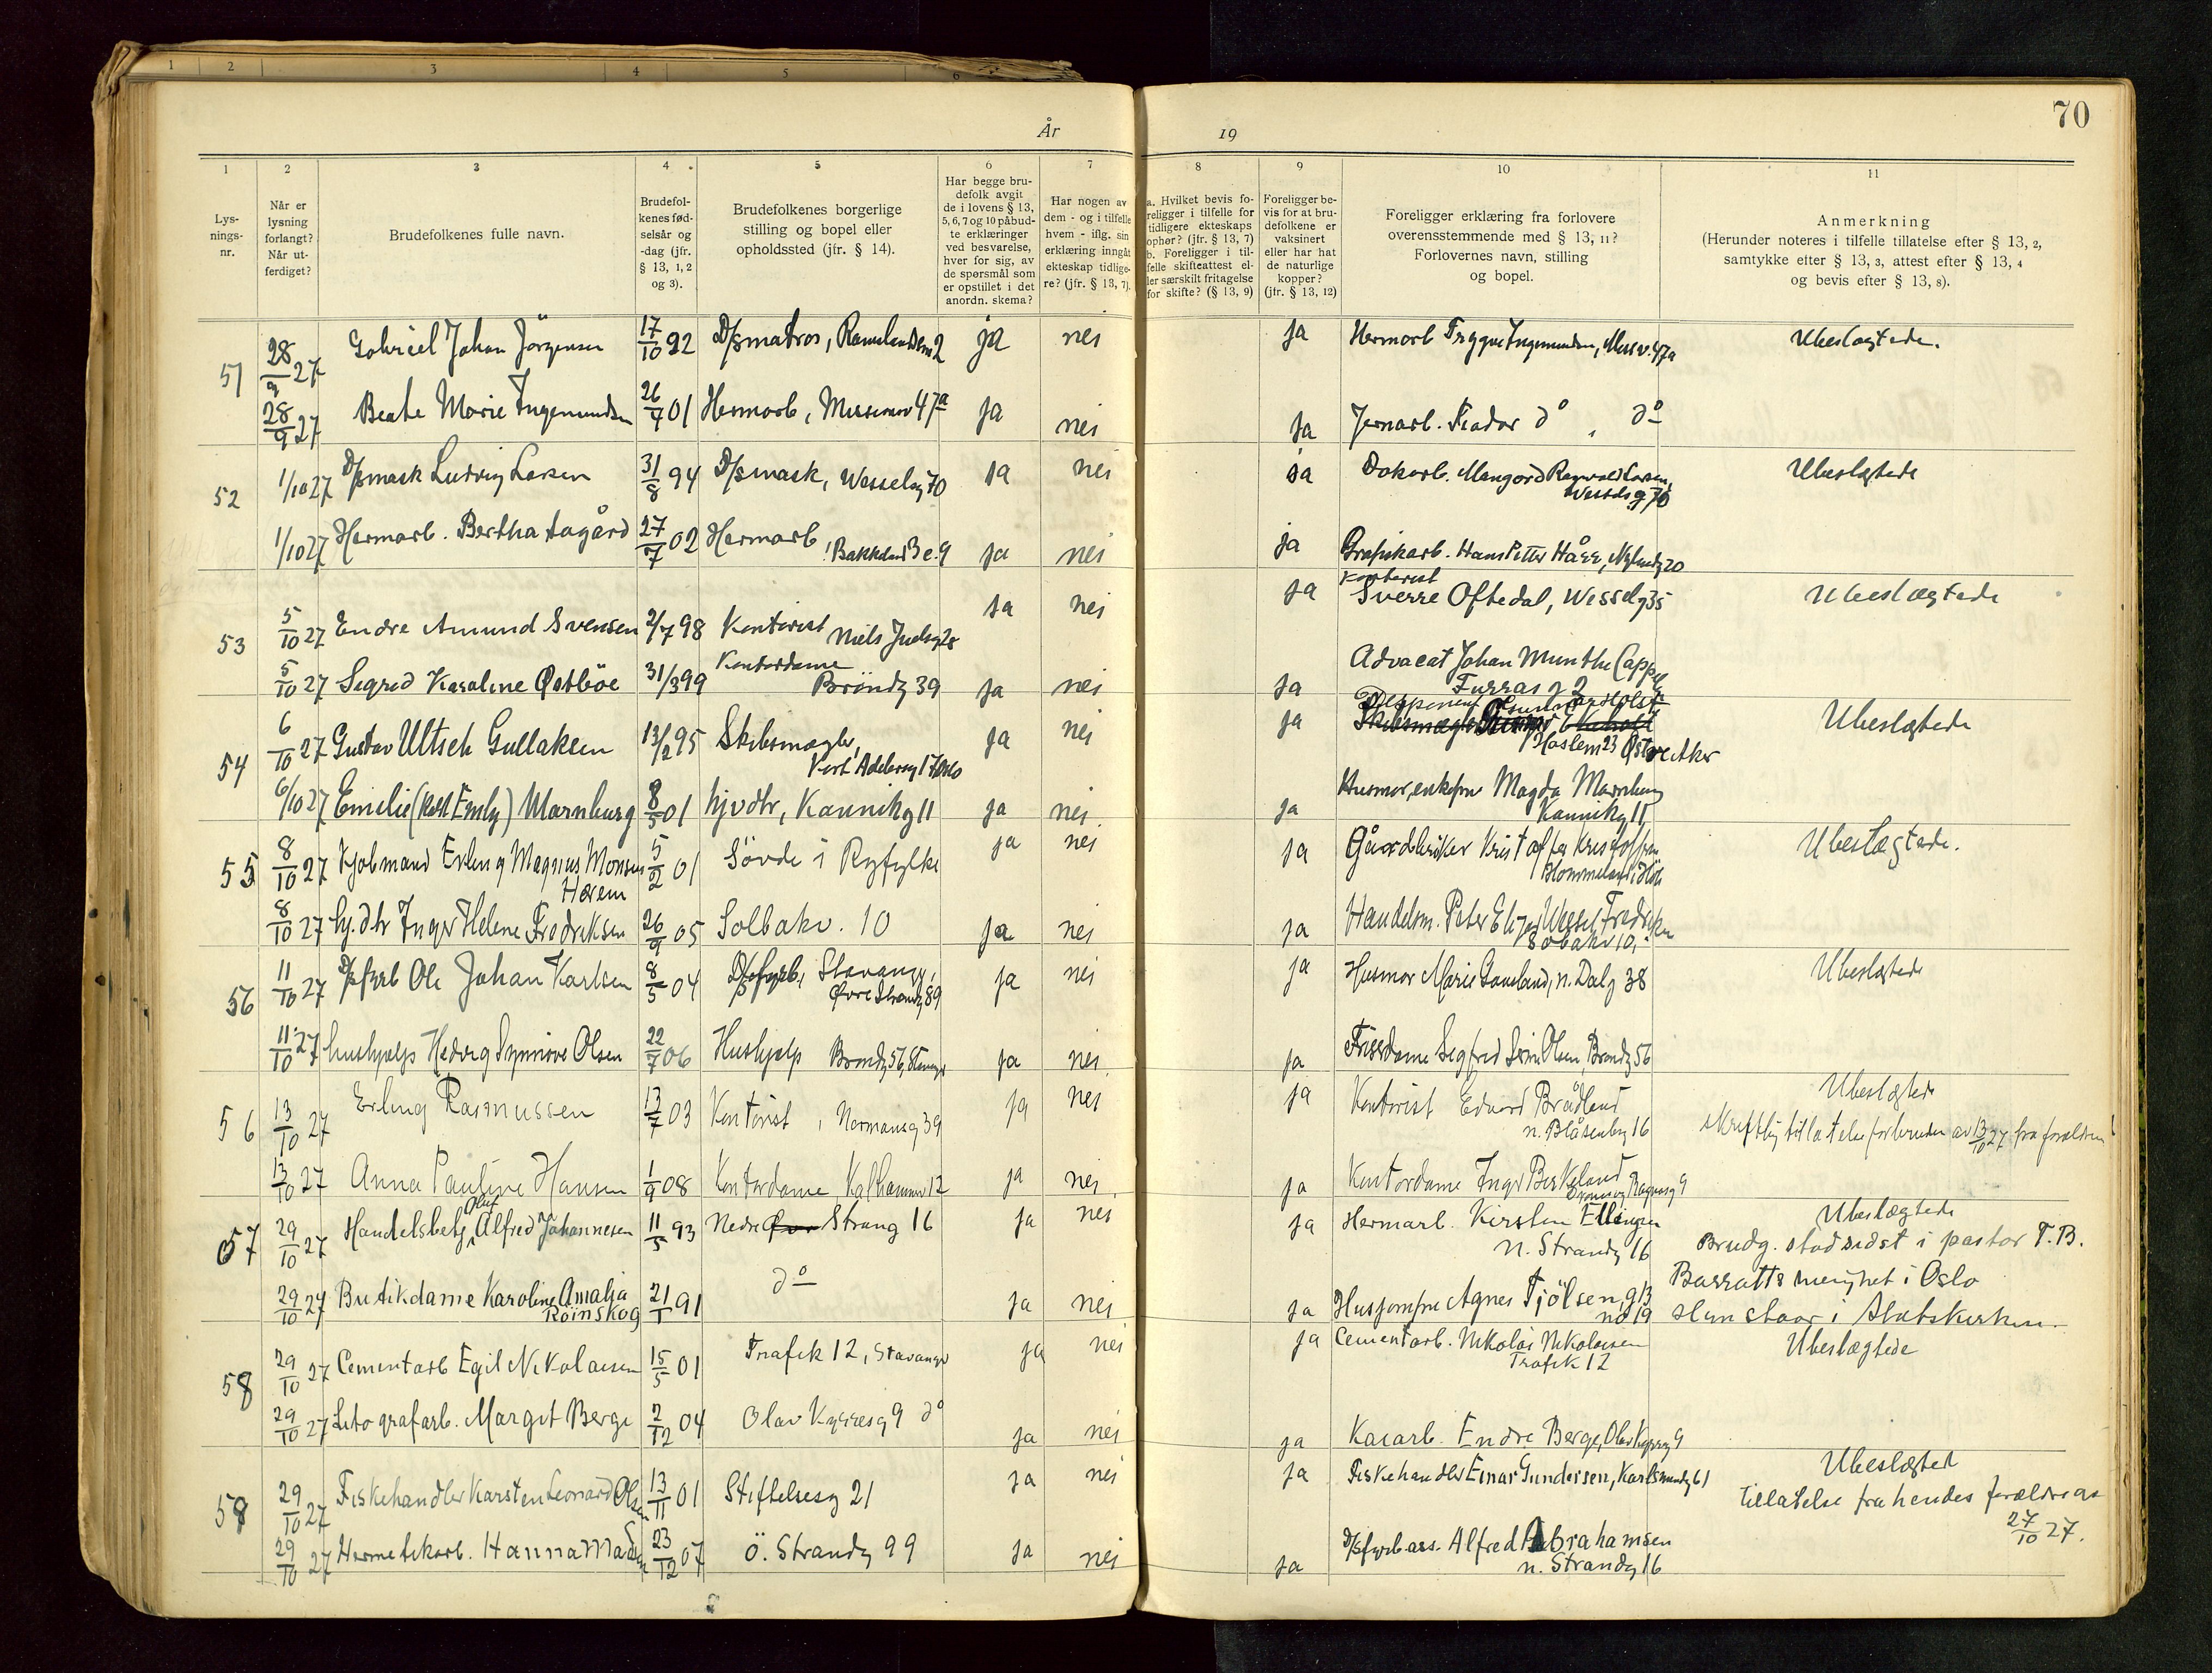 1 2 3 4 5 6
År 19
70
1 2 3 4 5 6 7 8 9 10 11
Lys-
nings-
nr.
Når er
lysning
forlangt?
Når ut-
ferdiget?
Brudefolkenes fulle navn.
Brudefol-
kenes fød-
selsår og
-dag (jfr.
§ 13, 1, 2
og 3).
Brudefolkenes borgerlige
stilling og bopel eller
opholdssted (jfr. § 14).
Har begge bru-
defolk avgit
de i lovens § 13,
5, 6, 7 og 10 påbud-
te erklæringer
ved besvarelse,
hver for sig, av
de spørsmål som
er opstillet i det
anordn. skema?
Har nogen av
dem - og i tilfelle
hvem - iflg. sin
erklæring inngåt
ekteskap tidlige-
re? (jfr. § 13, 7).
a. Hvilket bevis fo-
religger i tilfelle for
tidligere ekteskaps
ophør? (jfr. § 13, 7)
b. Foreligger i til-
felle skifteattest el-
ler særskilt fritagelse
for skifte? (§ 13, 9)
Foreligger be-
vis for at bru-
defolkene er
vaksinert
eller har hat
de naturlige
kopper?
(jfr. § 13, 12)
Foreligger erklæring fra forlovere
overensstemmende med § 13, 11?
Forlovernes navn, stilling
og bopel.
Anmerkning
(Herunder noteres i tilfelle tillatelse efter § 13, 2,
samtykke efter § 13, 3, attest efter § 13, 4
og bevis efter § 13, 8).
51 28/9 27 Gabriel Johan Jörgensen 17/10 92 D/smatros, 2 ja nei ja Hermarb Trygve Ingemundsen, 47a Ubeslægtede.
28/9 27 Beate Marie Ingemundsen 26/9 01 Hermarb, Misionsv 47a ja nei ja Jernarb. Teodor do, do
52 1/10 27 D/smask Ludvig Larsen 31/8 94 D/smask, Wesselsg 70 ja nei ja Dokarb. Mangord Ragnvald Larsen, Ubeslægtede
Wesselsg 70
1/10 27 Hermarb. Bertha Aagård 27/7 02 Hermarb, 9 ja nei ja Grafiskarb. Hans Petter Håer, Nylundg 20
Kontorist
53 5/10 27 Endre Amund Svensen 2/7 98 Kontorist Niels Juelsg 28 ja nei ja Sverre Oftedal, Wesselg 35 Ubeslægtede
5/10 27 Sigrid Karoline Østböe 31/3 99 Kontordame ja nei ja Advocat Johan Munthe Cappelen
Bröndg 39 Furrasg 2
54 6/10 27 Gustav Ultsch Gullaksen 13/2 95 Skibsmægler, ja nei ja Ubeslægtede
Kort Adelersg 17 Oslo Haslem 23 Østre Aker
6/10 27 Emilie (kaldt Emly) Marnburg 8/5 01 hjvdtr, Kannikg 11 ja nei ja Husmor, enkefru Magda Marnburg
Kannikg 11
55 8/10 27 Kjøbmand Erling Magnus Monsen 5/2 01 Sövde i Ryfylke ja nei ja Gårdbruker Kristoffer Kristoffersen Ubeslægtede.
8/10 27 Hj. dtr Inger Helene Fredriksen 26/9 05 Solbakv. 10 ja nei ja Handelsm. Peter Wessel Fredriksen
Solbakv 10,
56 11/10 27 D/sfyrb Ole Johan Karlsen 8/5 04 D/sfyrb, Stavanger, ja nei ja Husmor Marie Gauland, n. Dalg 38 Ubeslægtede
Øvre Strandg 89
11/10 27 hushjælp Hedvig Synnöve Olsen 22/7 06 Hushjelp Bröndg 56, Stavanger ja nei ja Frisørdame Sigfrid Olsen, Bröndg 56
56 13/10 27 Erling Rasmussen 13/7 03 Kontorist, Normansg 39 ja nei ja Kontorist Edvard Brådland Ubeslægtede
n. Blåsenbg 16 skriftlig tillatelse for bruden av 13/10 27 fra forældrene
13/10 27 Anna Pauline Hansen 1/9 08 Kontordame, Kalhammer 12 ja nei ja Kontordame Inger Birkeland
Dronning Ragnasg 9
57 29/10 27 Handelsbetj. Oluf Alfred Johannesen 11/5 93 Nedre Strang 16 ja nei ja Hermarb. Kirsten Ellingsen Ubeslægtede
n. Strandg 16 Brudg. stod sidst i pastor T.B.
29/10 27 Butikdame Karoline Amalia 21/1 91 do ja nei ja Husjomfru Agnes Tjölsen, g 13 Barratts menighet i Oslo
Röinskog no 19 Hun staar i Statskirken.
58 29/10 27 Cementarb Egil Nikolaisen 15/5 01 Trafik 12, Stavanger ja nei ja Cementarb. Nikolai Nikolaisen Ubeslægtede
Trafik 12
29/10 27 Litografarb. Margit Berge 2/12 04 Olav Kyrresg 9 do ja nei ja Kaiarb. Endre Berge, Olav Kyrresg 9
58 29/10 27 Fiskehandler Karsten Leonard Olsen 13/11 01 Stiftelsesg 21 ja nei ja Fiskehandler Einar Gundersen, Karlsmindeg 61 Ubeslægted
Tillatelse fra hendes forældre av
27/10 27.
29/10 27 Hermetikarb. Hanna Madsen 23/12 07 ö. Strandg 99 ja nei ja D/sfyrb ass. Alfred Abrahamsen
n. Strandg 16